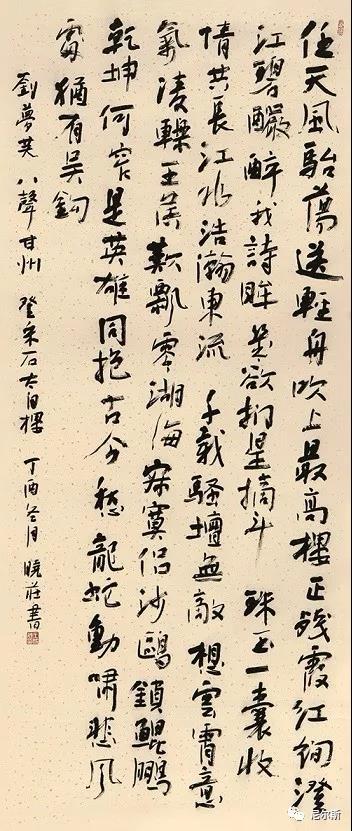 任天風駘蕩送輕舟吹上最高樓正殘霞紅絢澄
江碧釅醉我詩眸欲捫星摘斗 珠玉一囊收
情共長江水浩瀚東流 千載騷壇無敵想雲霄意
氣凌轢王侯歎飄零湖海寂寞侶沙鷗鎖鯤鵬
乾坤何窄是英雄同抱古今愁龍蛇動嘯悲風
雷猶有吳鉤
劉夢芙八聲甘州 登采石太白樓 丁酉冬月 曉莊書
尼尔斯